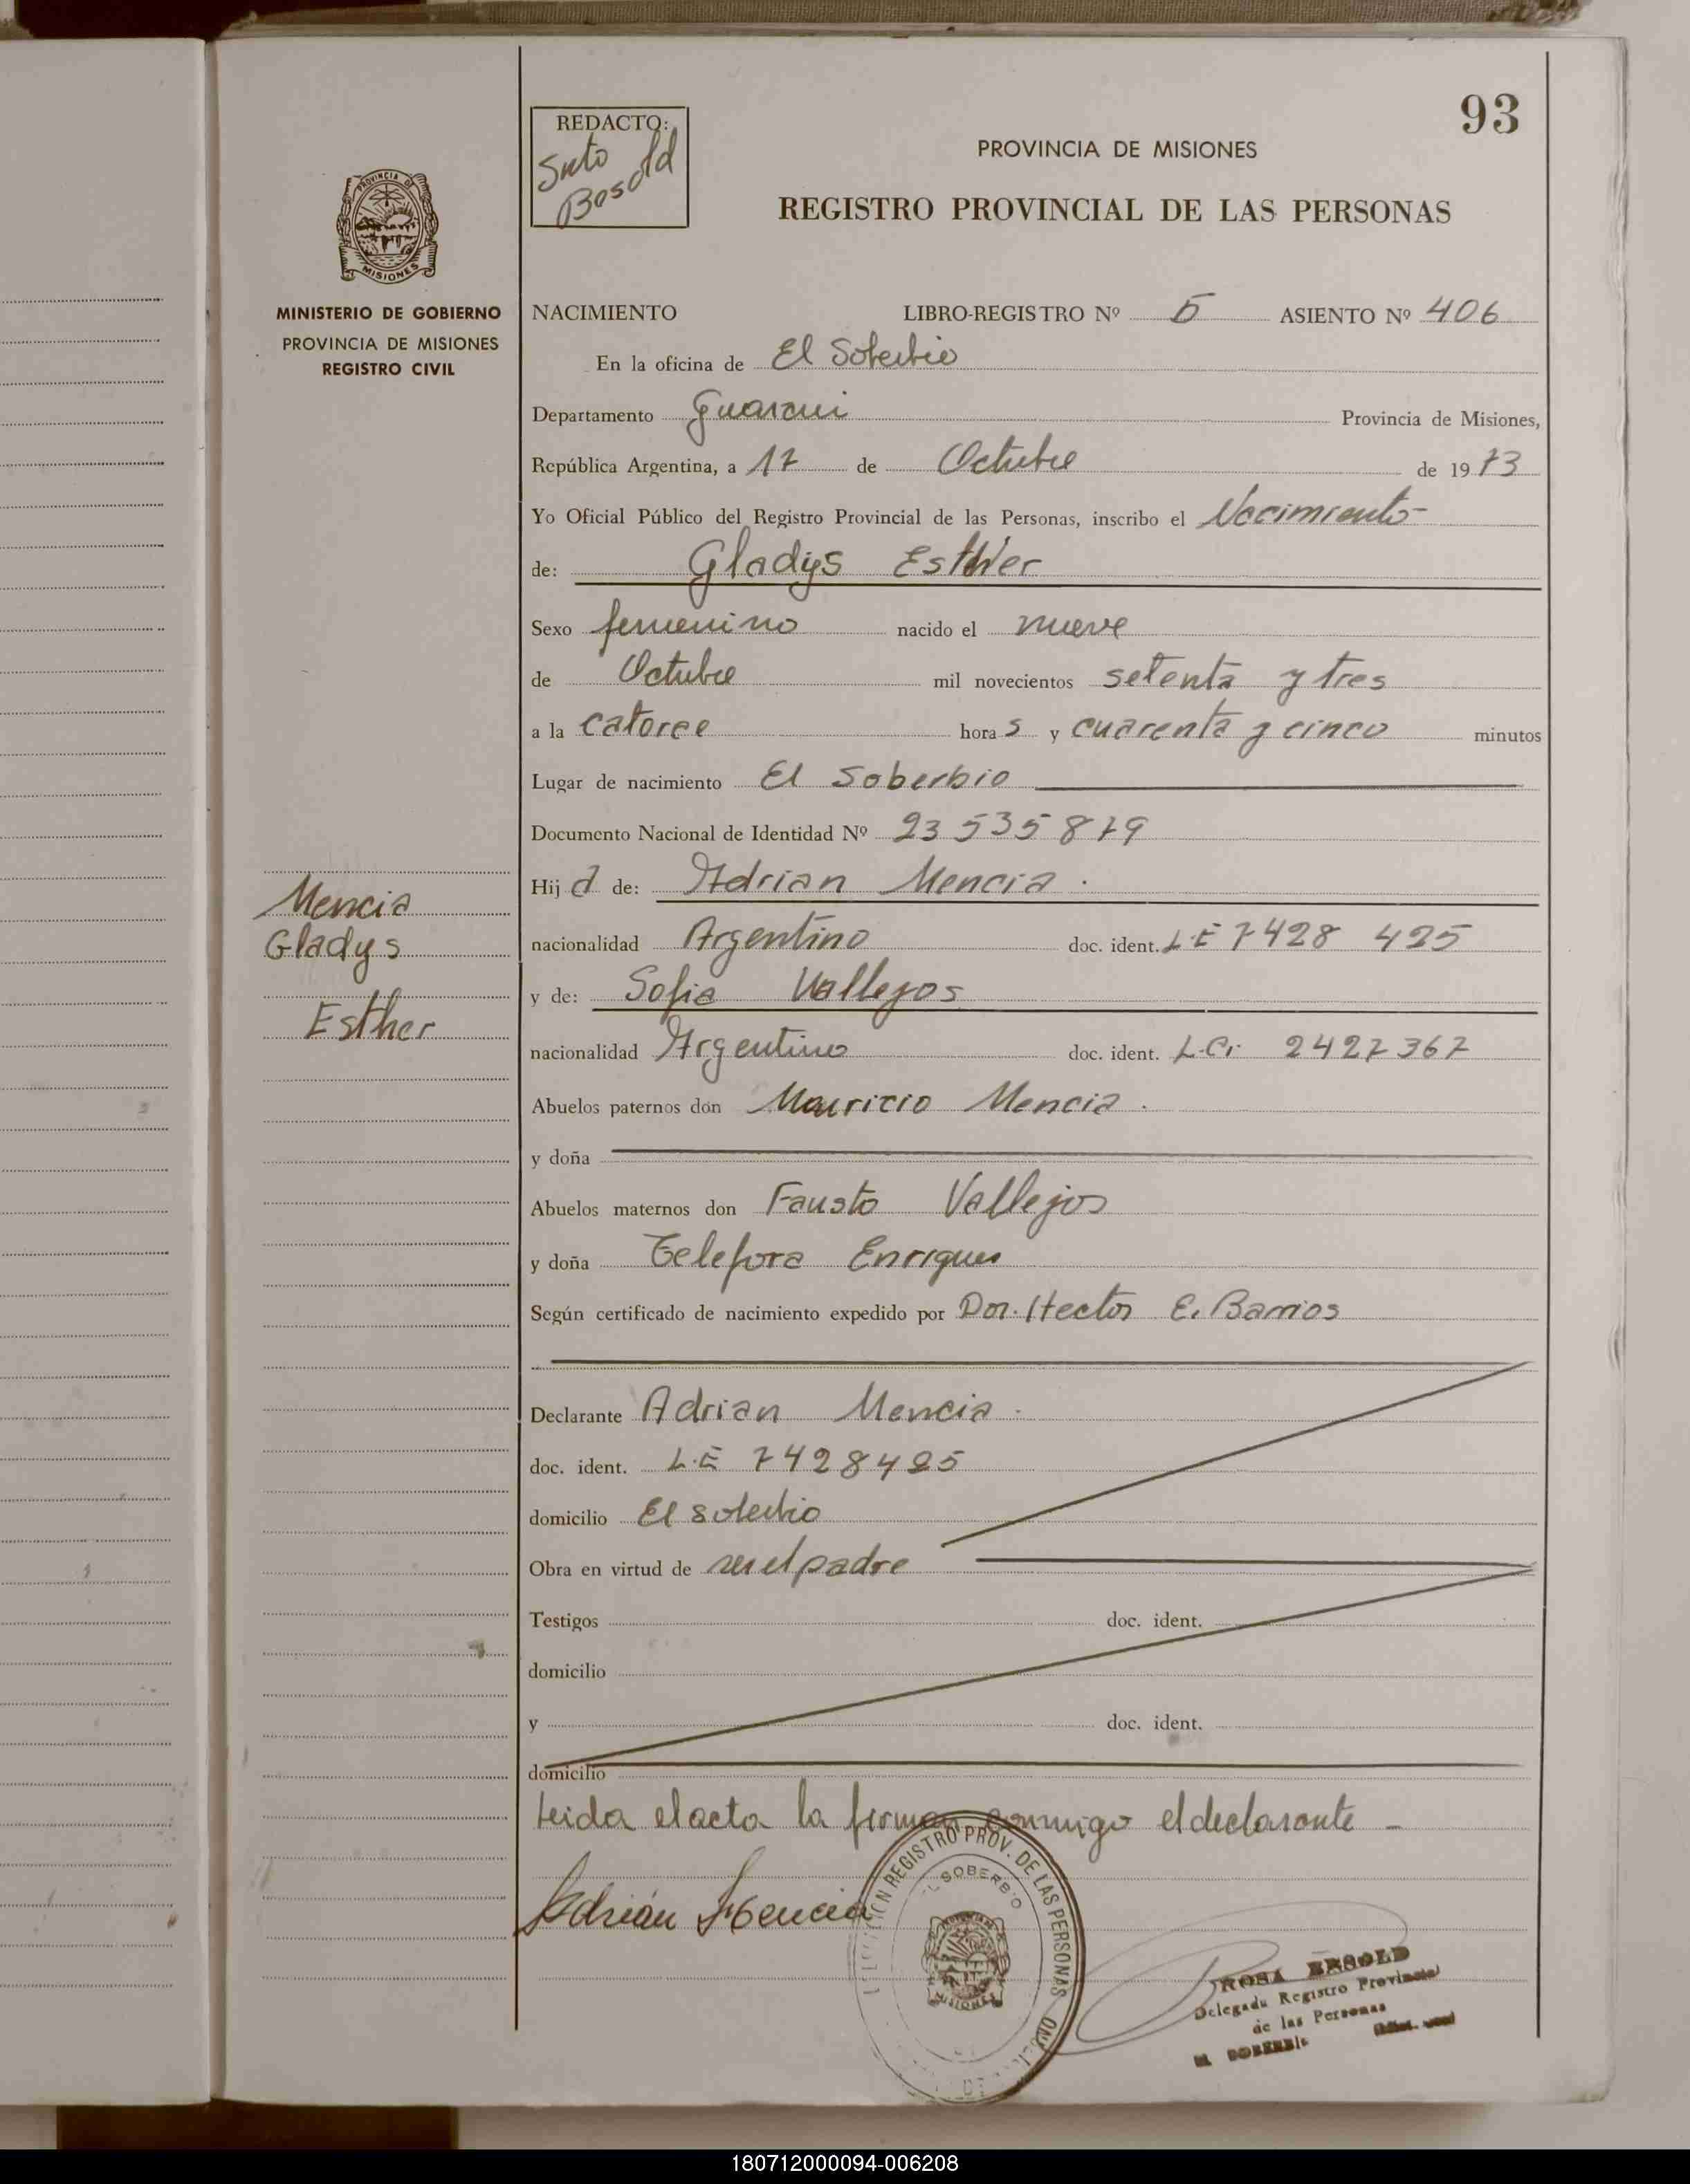 93
REDACTO:
Bosold
PROVINCIA DE MISIONES
REGISTRO PROVINCIAL DE LAS PERSONAS
PROVINCIA DE
MISIONES
MINISTERIO DE GOBIERNO
PROVINCIA DE MISIONES
REGISTRO CIVIL
NACIMIENTO LIBRO-REGISTRO Nº 5 ASIENTO Nº 406
En la oficina de El Soberbio
Departamento Guarani Provincia de Misiones,
República Argentina, a 17 de Octubre de 1973
Yo Oficial Público del Registro Provincial de las Personas, inscribo el Nacimiento-
de: Gladys Esther
Sexo femenino nacido el nueve
de Octubre mil novecientos setenta y tres
a la catorce hora s y cuarenta y cinco minutos
Lugar de nacimiento El Soberbio
Documento Nacional de Identidad Nº 23 535 879
Hij a de: Adrian Mencia.
nacionalidad Argentino doc. ident. L.E 7428 425
y de: Sofia Vallejos
nacionalidad Argentino doc. ident. L.C. 2427367
Abuelos paternos don Mauricio Mencia.
y doña
Abuelos maternos don Fausto Vallejos
y doña Telefora Enriques
Según certificado de nacimiento expedido por Dor. Hector E. Barrios
Declarante Adrian Mencia.
doc. ident. L.E 7428425
domicilio El Soberbio
Obra en virtud de ser el padre
Testigos doc. ident.
domicilio
y doc. ident.
domicilio
Leida el acta la firman conmigo el declarante -
Mencia
Gladys
Esther
Adrián Mencia
REGISTRO PROV. DE LAS PERSONAS
SOBERBIO
MISIONES
ROSA BESOLD
Delegada Registro Provincial
de las Personas
EL SOBERBIO
180712000094-006208